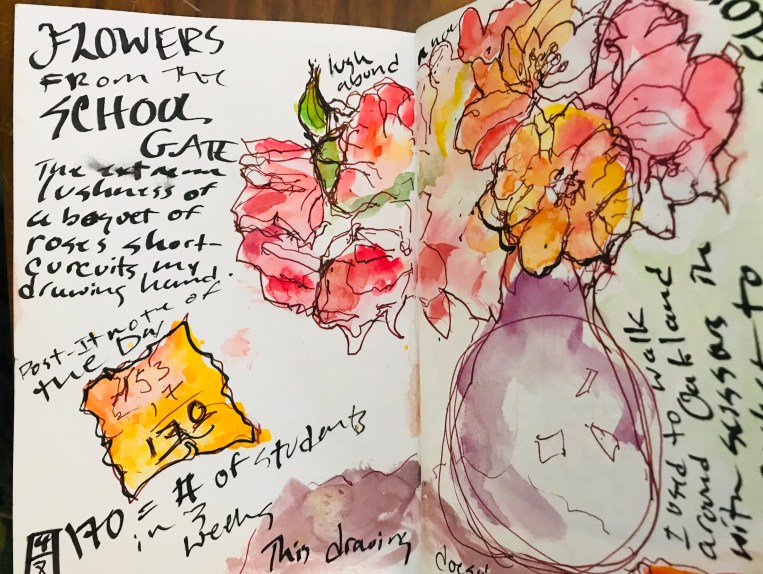 FLOWERS
FROM THE
SCHOOL
GATE
The extreme
lushness of
a boquet of
roses short-
curcuits my
drawing hand.
lush
abund
ance
Post-It note of
the Day
170
170 = # of students
in 3
weeks
This drawing
doesn
I used to walk
around Oakland
with scissors in
to